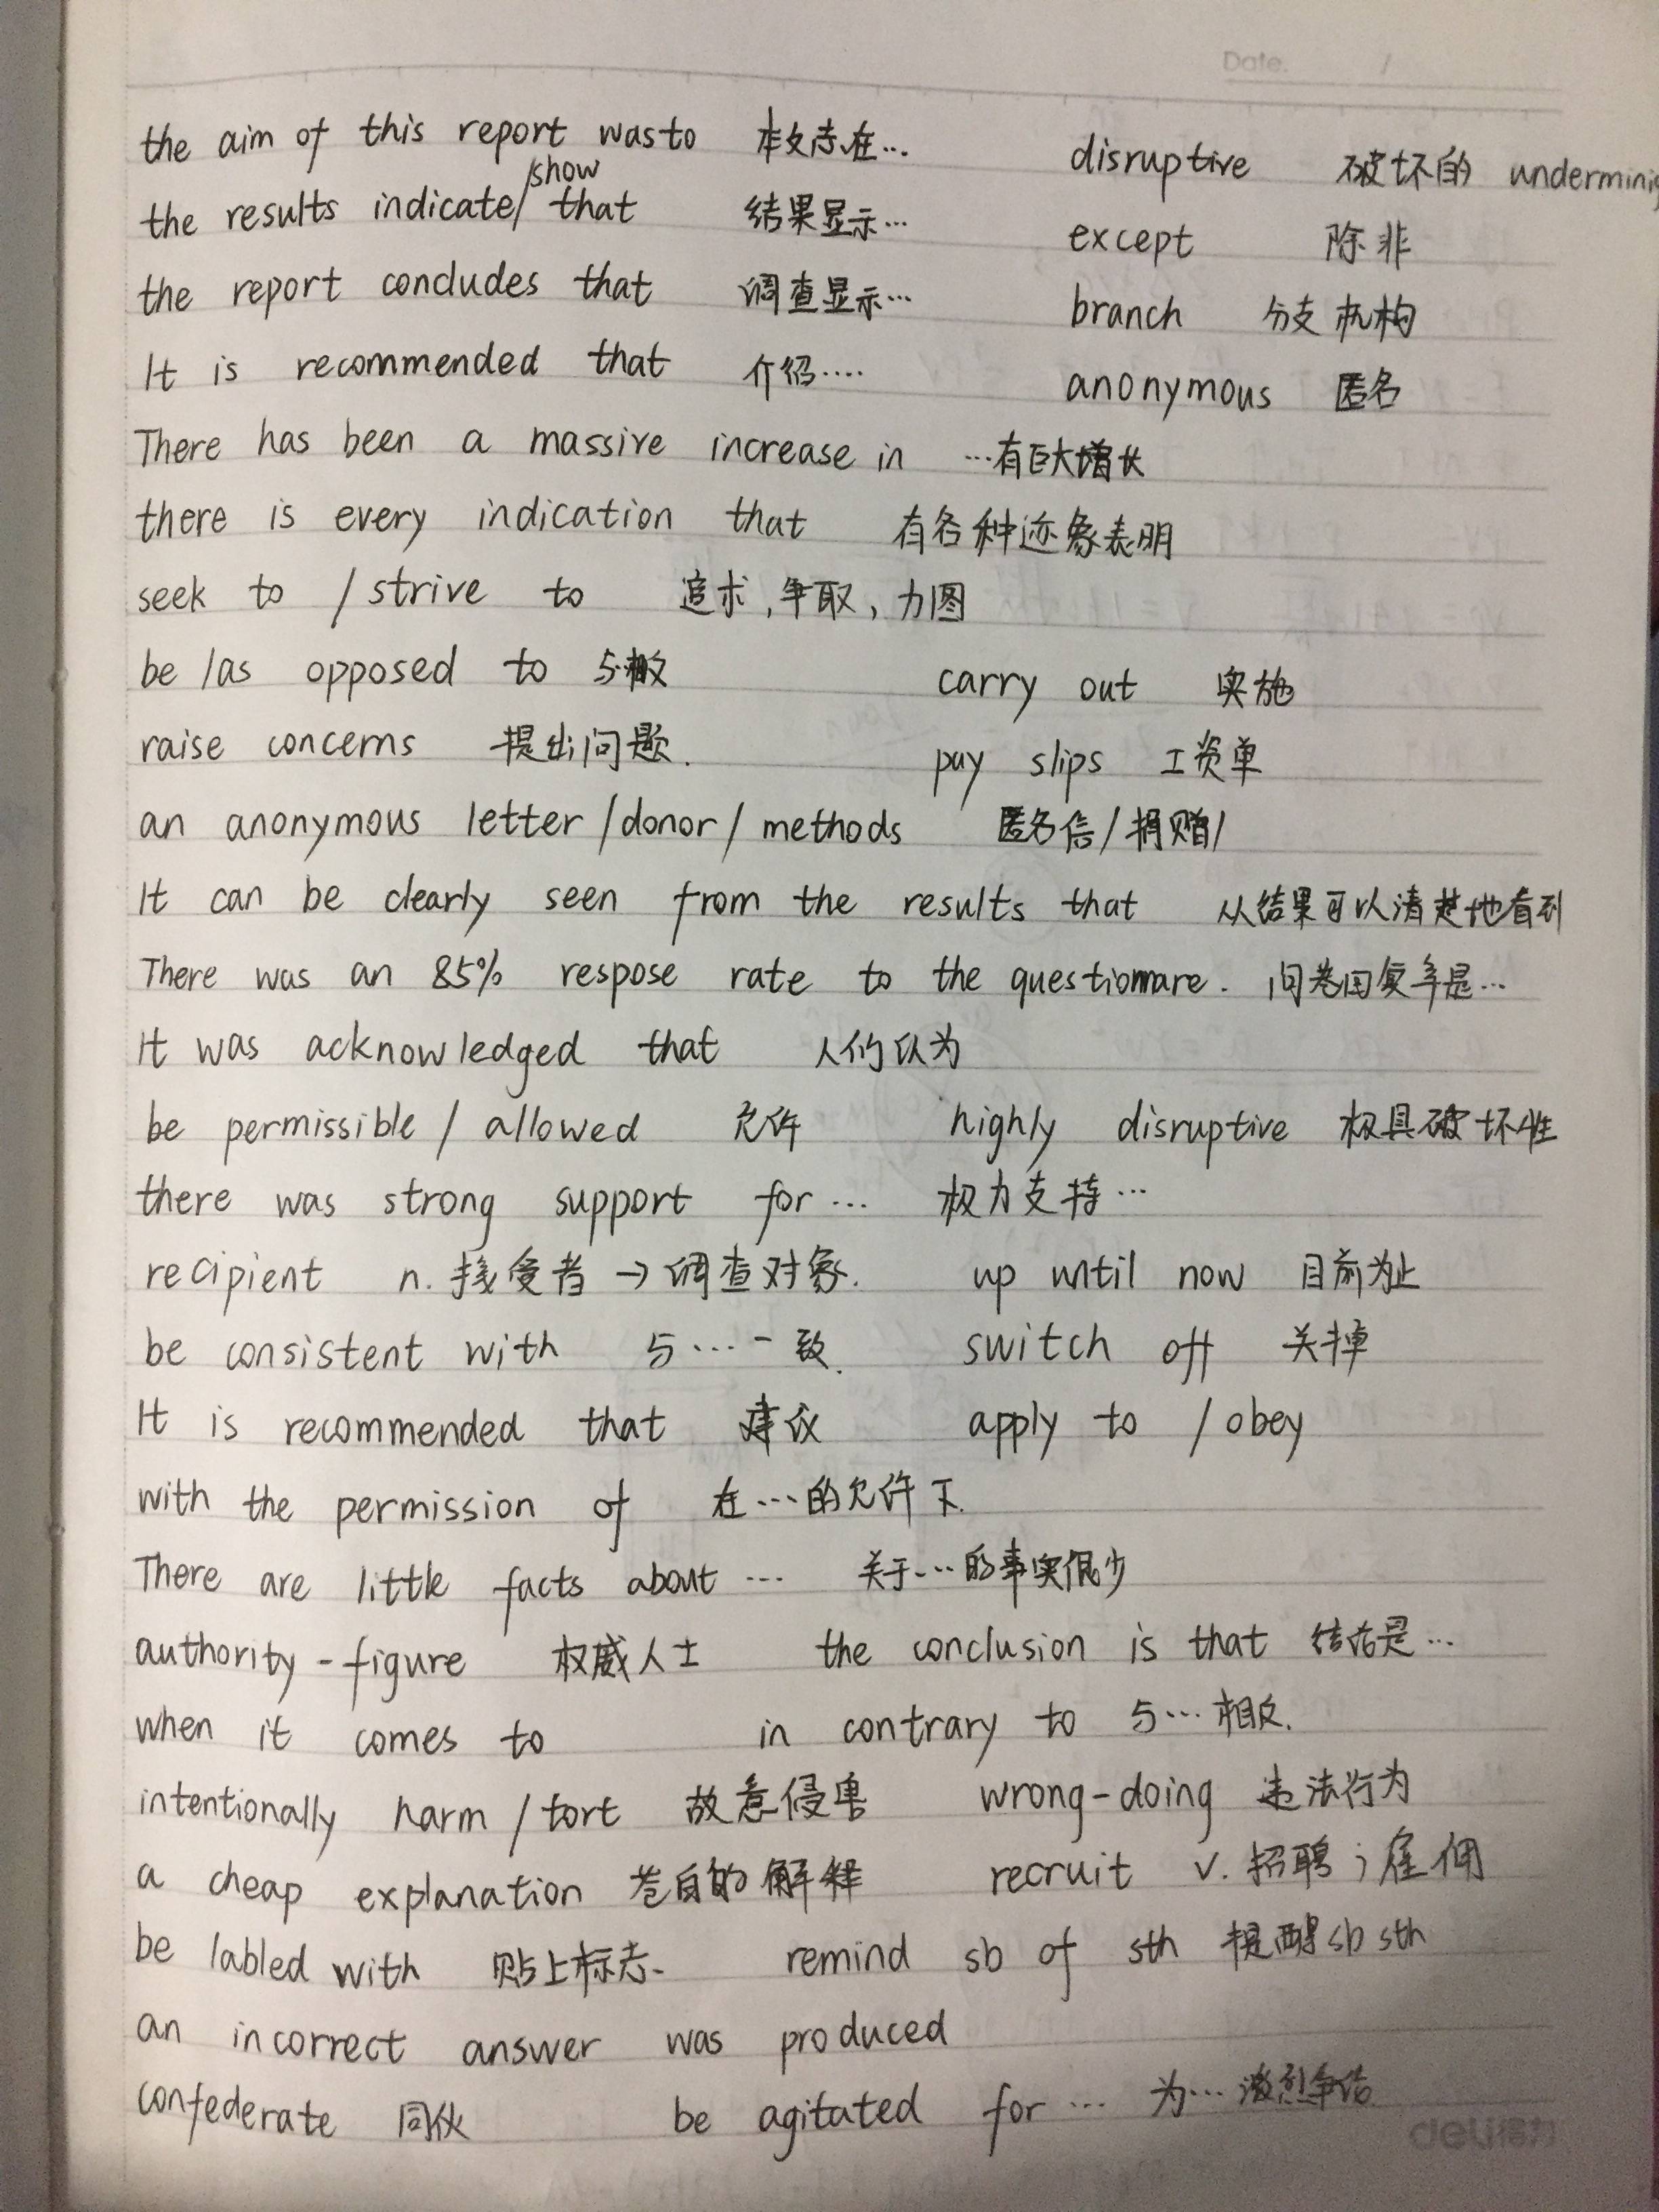 Date. /
the aim of this report was to 本文志在… disruptive 破坏的 underminig
the results indicate/show that 结果显示… except 除非
the report concludes that 调查显示… branch 分支机构
It is recommended that 介绍…. anonymous 匿名
There has been a massive increase in …有巨大增长
there is every indication that 有各种迹象表明
seek to / strive to 追求,争取,力图
be /as opposed to 与 carry out 实施
raise concerns 提出问题. pay slips 工资单
an anonymous letter /donor / methods 匿名信/捐赠/
It can be clearly seen from the results that 从结果可以清楚地看到
There was an 85% respose rate to the questionnare. 问卷回复率是…
It was acknowledged that 人们认为
be permissible / allowed 允许 highly disruptive 极具破坏性
there was strong support for … 极力支持…
recipient n. 接受者 → 调查对象. up until now 目前为止
be consistent with 与…一致. switch off 关掉
It is recommended that 建议 apply to / obey
with the permission of 在…的允许下.
There are little facts about … 关于…的事实很少
authority-figure 权威人士 the conclusion is that 结论是…
when it comes to in contrary to 与…相反.
intentionally harm / tort 故意侵害 wrong-doing 违法行为
a cheap explanation 苍白的解释 recruit v. 招聘;雇佣
be labled with 贴上标志. remind sb of sth 提醒sb sth
an incorrect answer was produced
confederate 同伙 be agitated for … 为…激烈争论.
deli得力